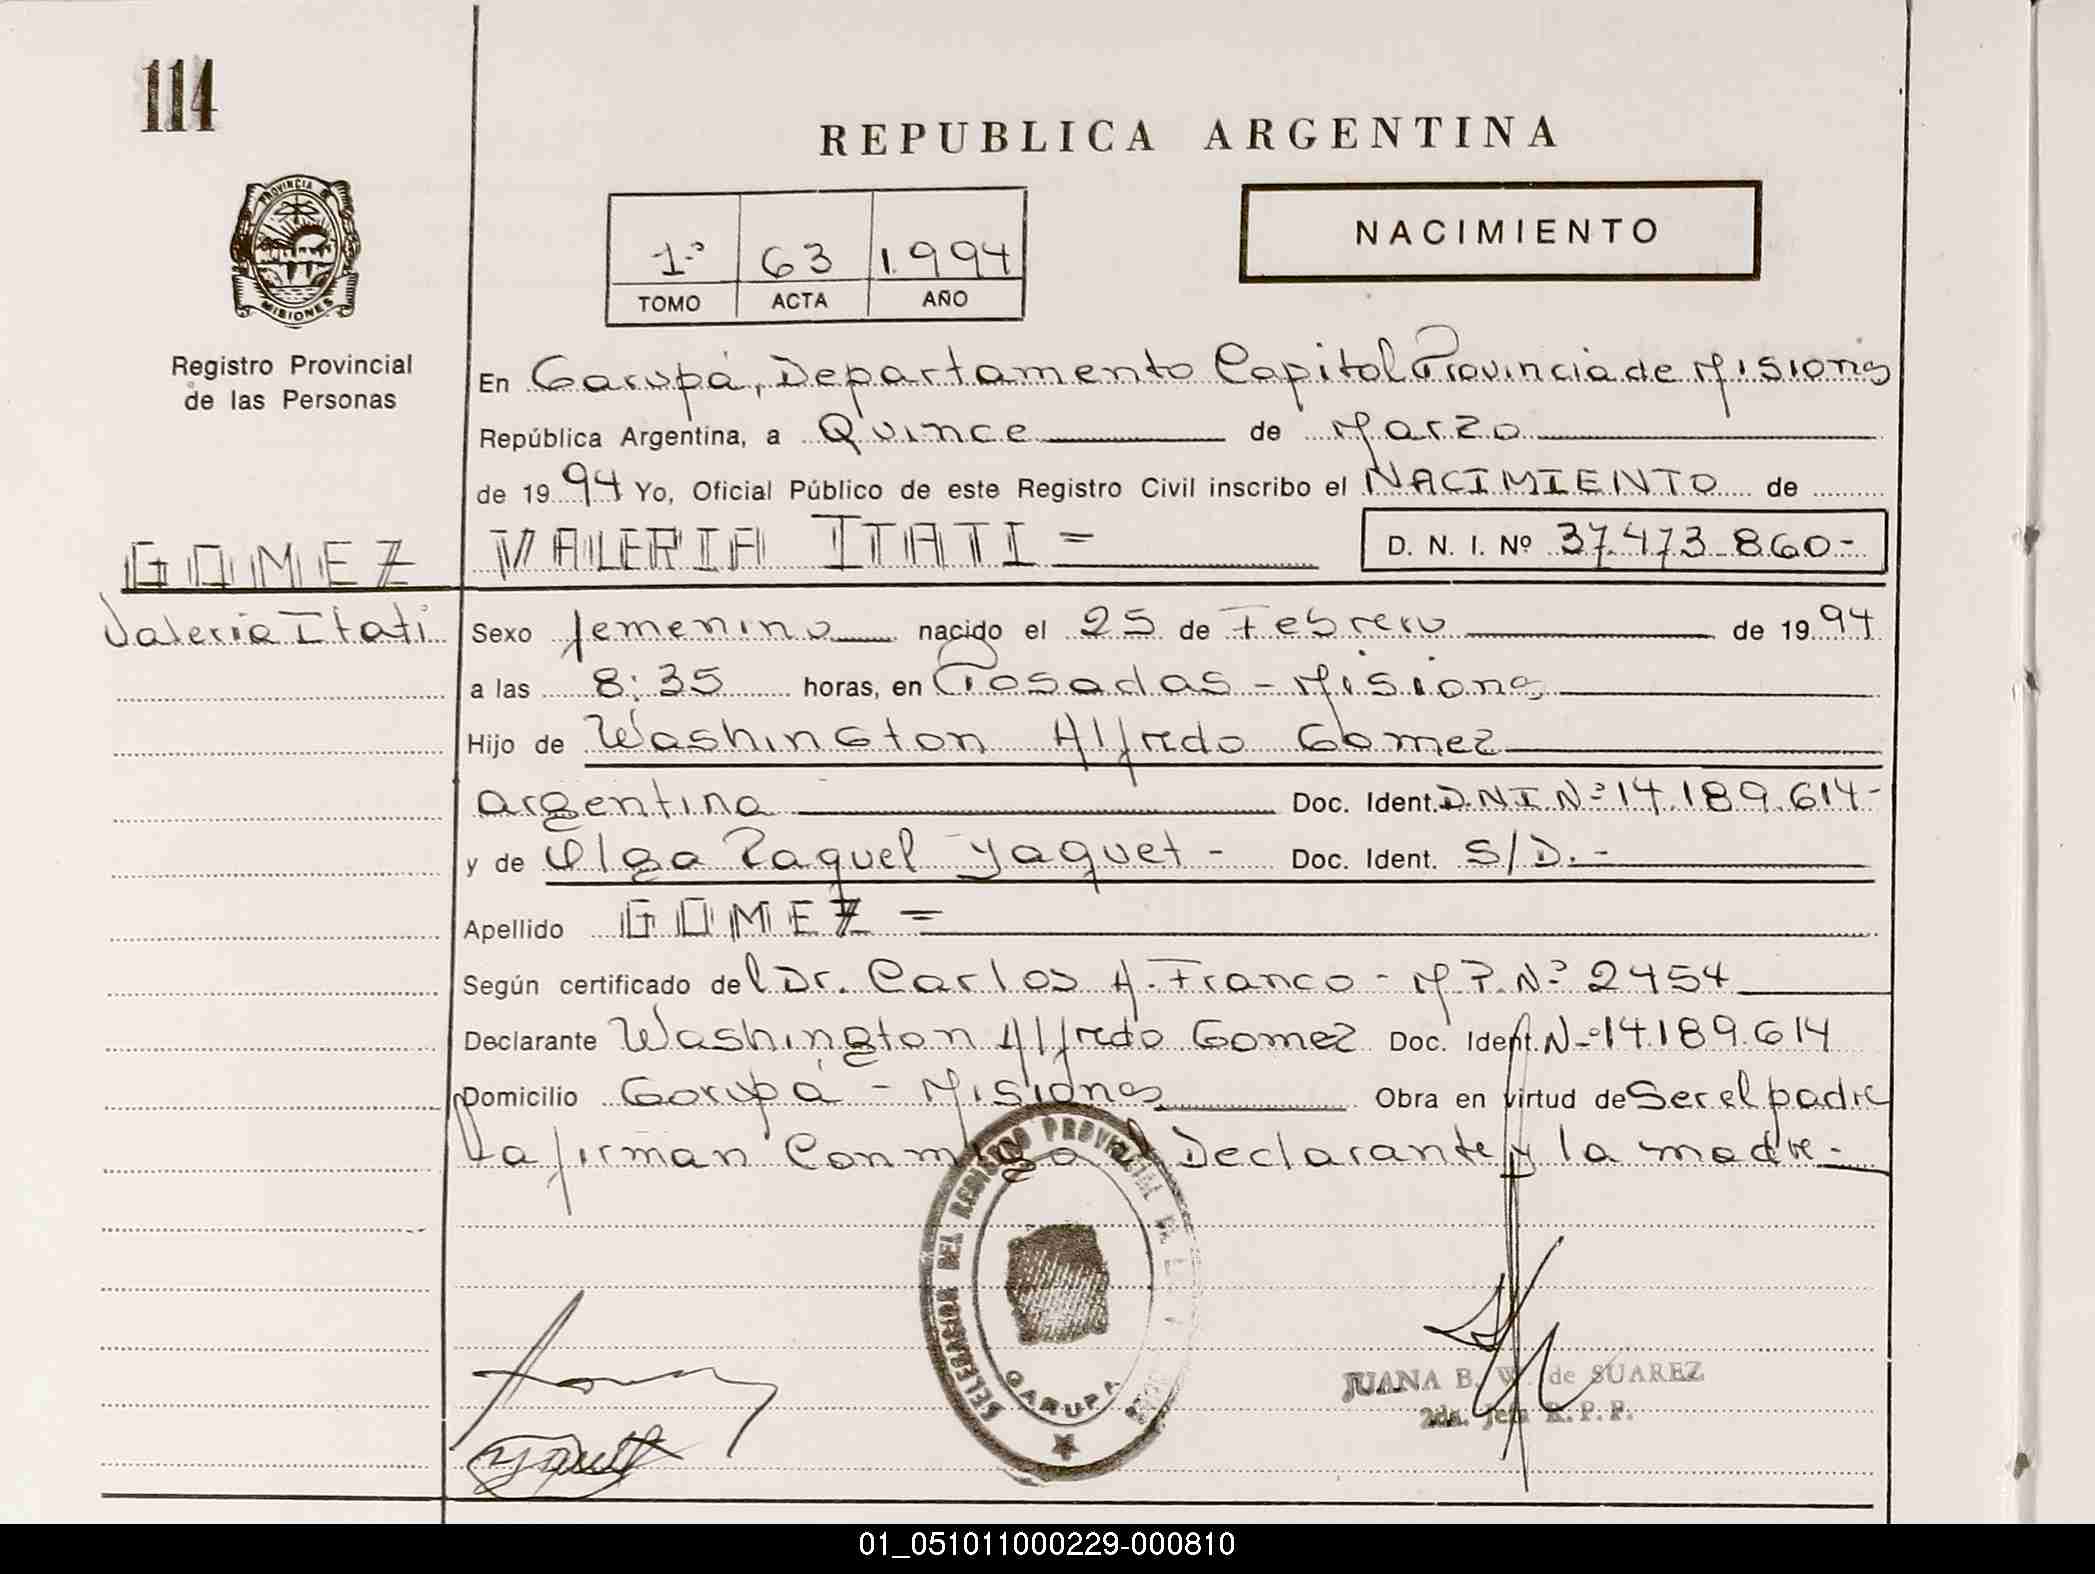 114
REPUBLICA ARGENTINA
PROVINCIA DE
MISIONES
Registro Provincial
de las Personas
1º 63 1.994
TOMO ACTA AÑO
NACIMIENTO
En Garupá, Departamento Capital Provincia de Misiones
República Argentina, a Quince de Marzo
de 1994 Yo, Oficial Público de este Registro Civil inscribo el NACIMIENTO de
GOMEZ VALERIA ITATI = D. N. I. Nº 37.473.860-
Valeria Itati Sexo femenino nacido el 25 de Febrero de 1994
a las 8:35 horas, en Posadas - Misiones
Hijo de Washington Alfredo Gomez
argentina Doc. Ident. DNI Nº 14.189.614-
y de Olga Raquel Yaquet - Doc. Ident. S/D.-
Apellido GOMEZ =
Según certificado del Dr. Carlos A. Franco - M.P. Nº 2454
Declarante Washington Alfredo Gomez Doc. Ident. Nº 14.189.614
Domicilio Garupá - Misiones Obra en virtud de Ser el padre
La firman Conmigo el Declarante y la madre.-
DEL REGISTRO PROVINCIAL DE
GARUPA
JUANA B. W. de SUAREZ
2da. Jefa R.P.P.
01_051011000229-000810